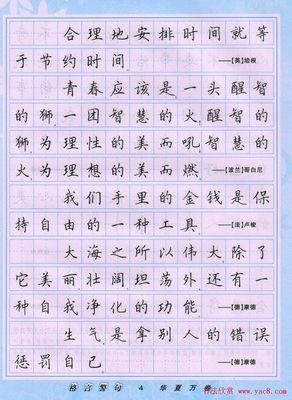 合理地安排时间就等
于节约时间 ——[英]培根
青春应该是一头醒智
的狮一团智慧的火醒智的
狮为理性的美而吼智慧的
火为理想的美而燃 ——[波兰]哥白尼
我们手里的金钱是保
持自由的一种工具 ——[法]卢梭
大海之所以伟大除了
它美丽壮阔坦荡外还有一
种自我净化的功能 ——[德]康德
生气是拿别人的错误
惩罚自己 ——[德]康德
格言警句 4 华夏万卷
书法欣赏 www.yac8.com